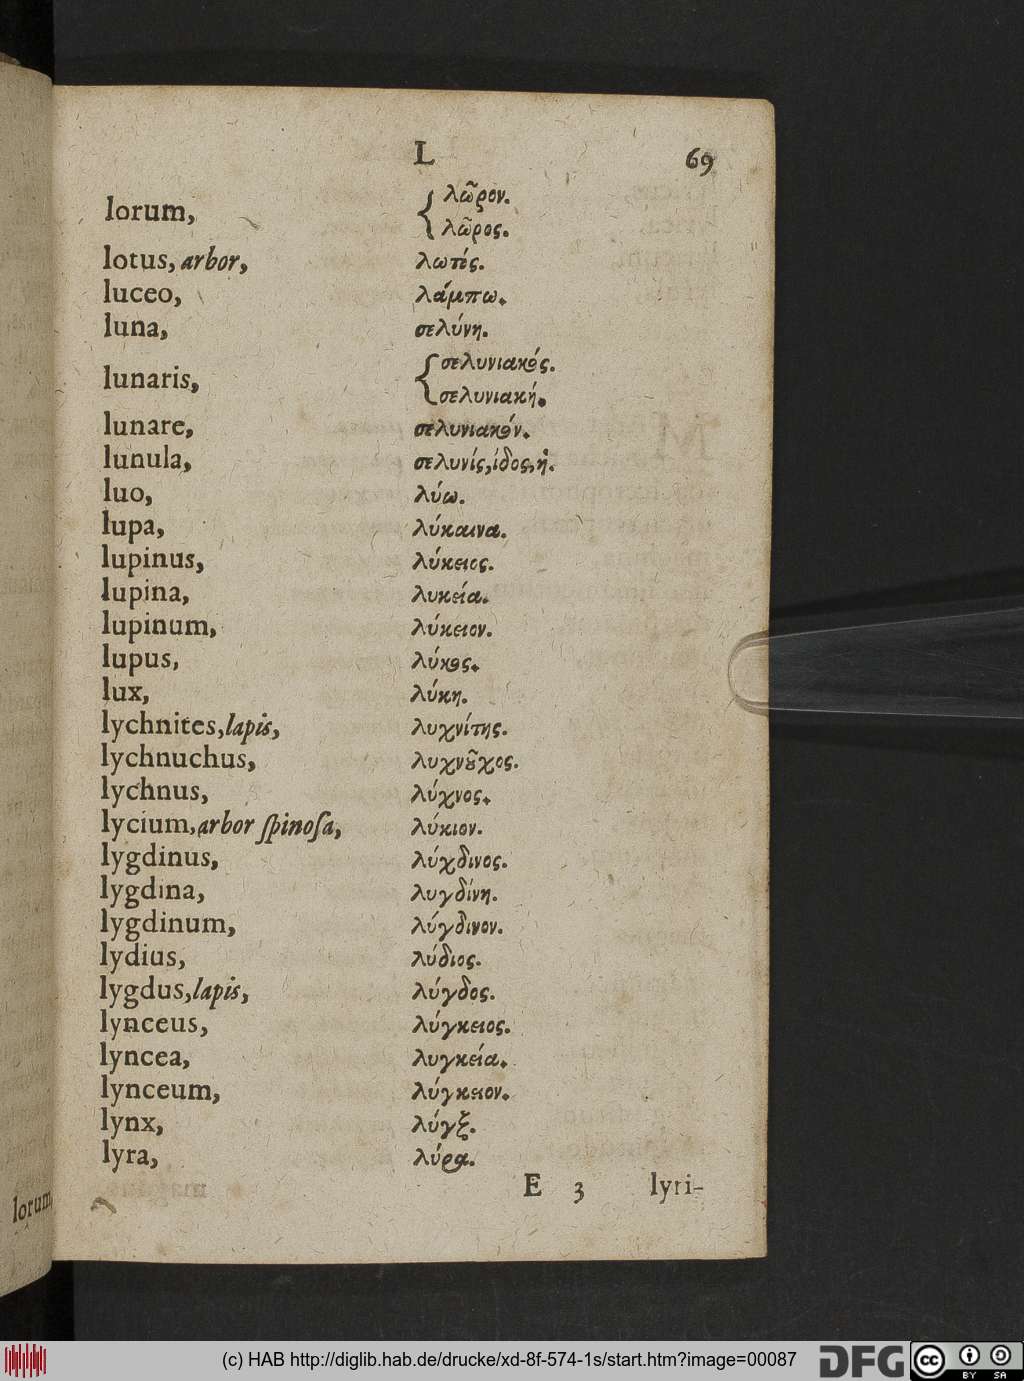 L 69
lorum, { λῶρον.
λῶρος.
lotus, arbor, λωτός.
luceo, λάμπω.
luna, σελύνη.
lunaris, { σελυνιακός.
σελυνιακή.
lunare, σελυνιακόν.
lunula, σελυνίς, ίδος, ἡ.
luo, λύω.
lupa, λύκαινα.
lupinus, λύκειος.
lupina, λυκεία.
lupinum, λύκειον.
lupus, λύκος.
lux, λύκη.
lychnites, lapis, λυχνίτης.
lychnuchus, λυχνȣ͂χος.
lychnus, λύχνος.
lycium, arbor ſpinoſa, λύκιον.
lygdinus, λύχδινος.
lygdina, λυγδίνη.
lygdinum, λύγδινον.
lydius, λύδιος.
lygdus, lapis, λύγδος.
lynceus, λύγκειος.
lyncea, λυγκεία.
lynceum, λύγκειον.
lynx, λύγξ.
lyra, λύρα.
E 3 lyri-
lorum
(c) HAB http://diglib.hab.de/drucke/xd-8f-574-1s/start.htm?image=00087 DFG cc BY SA